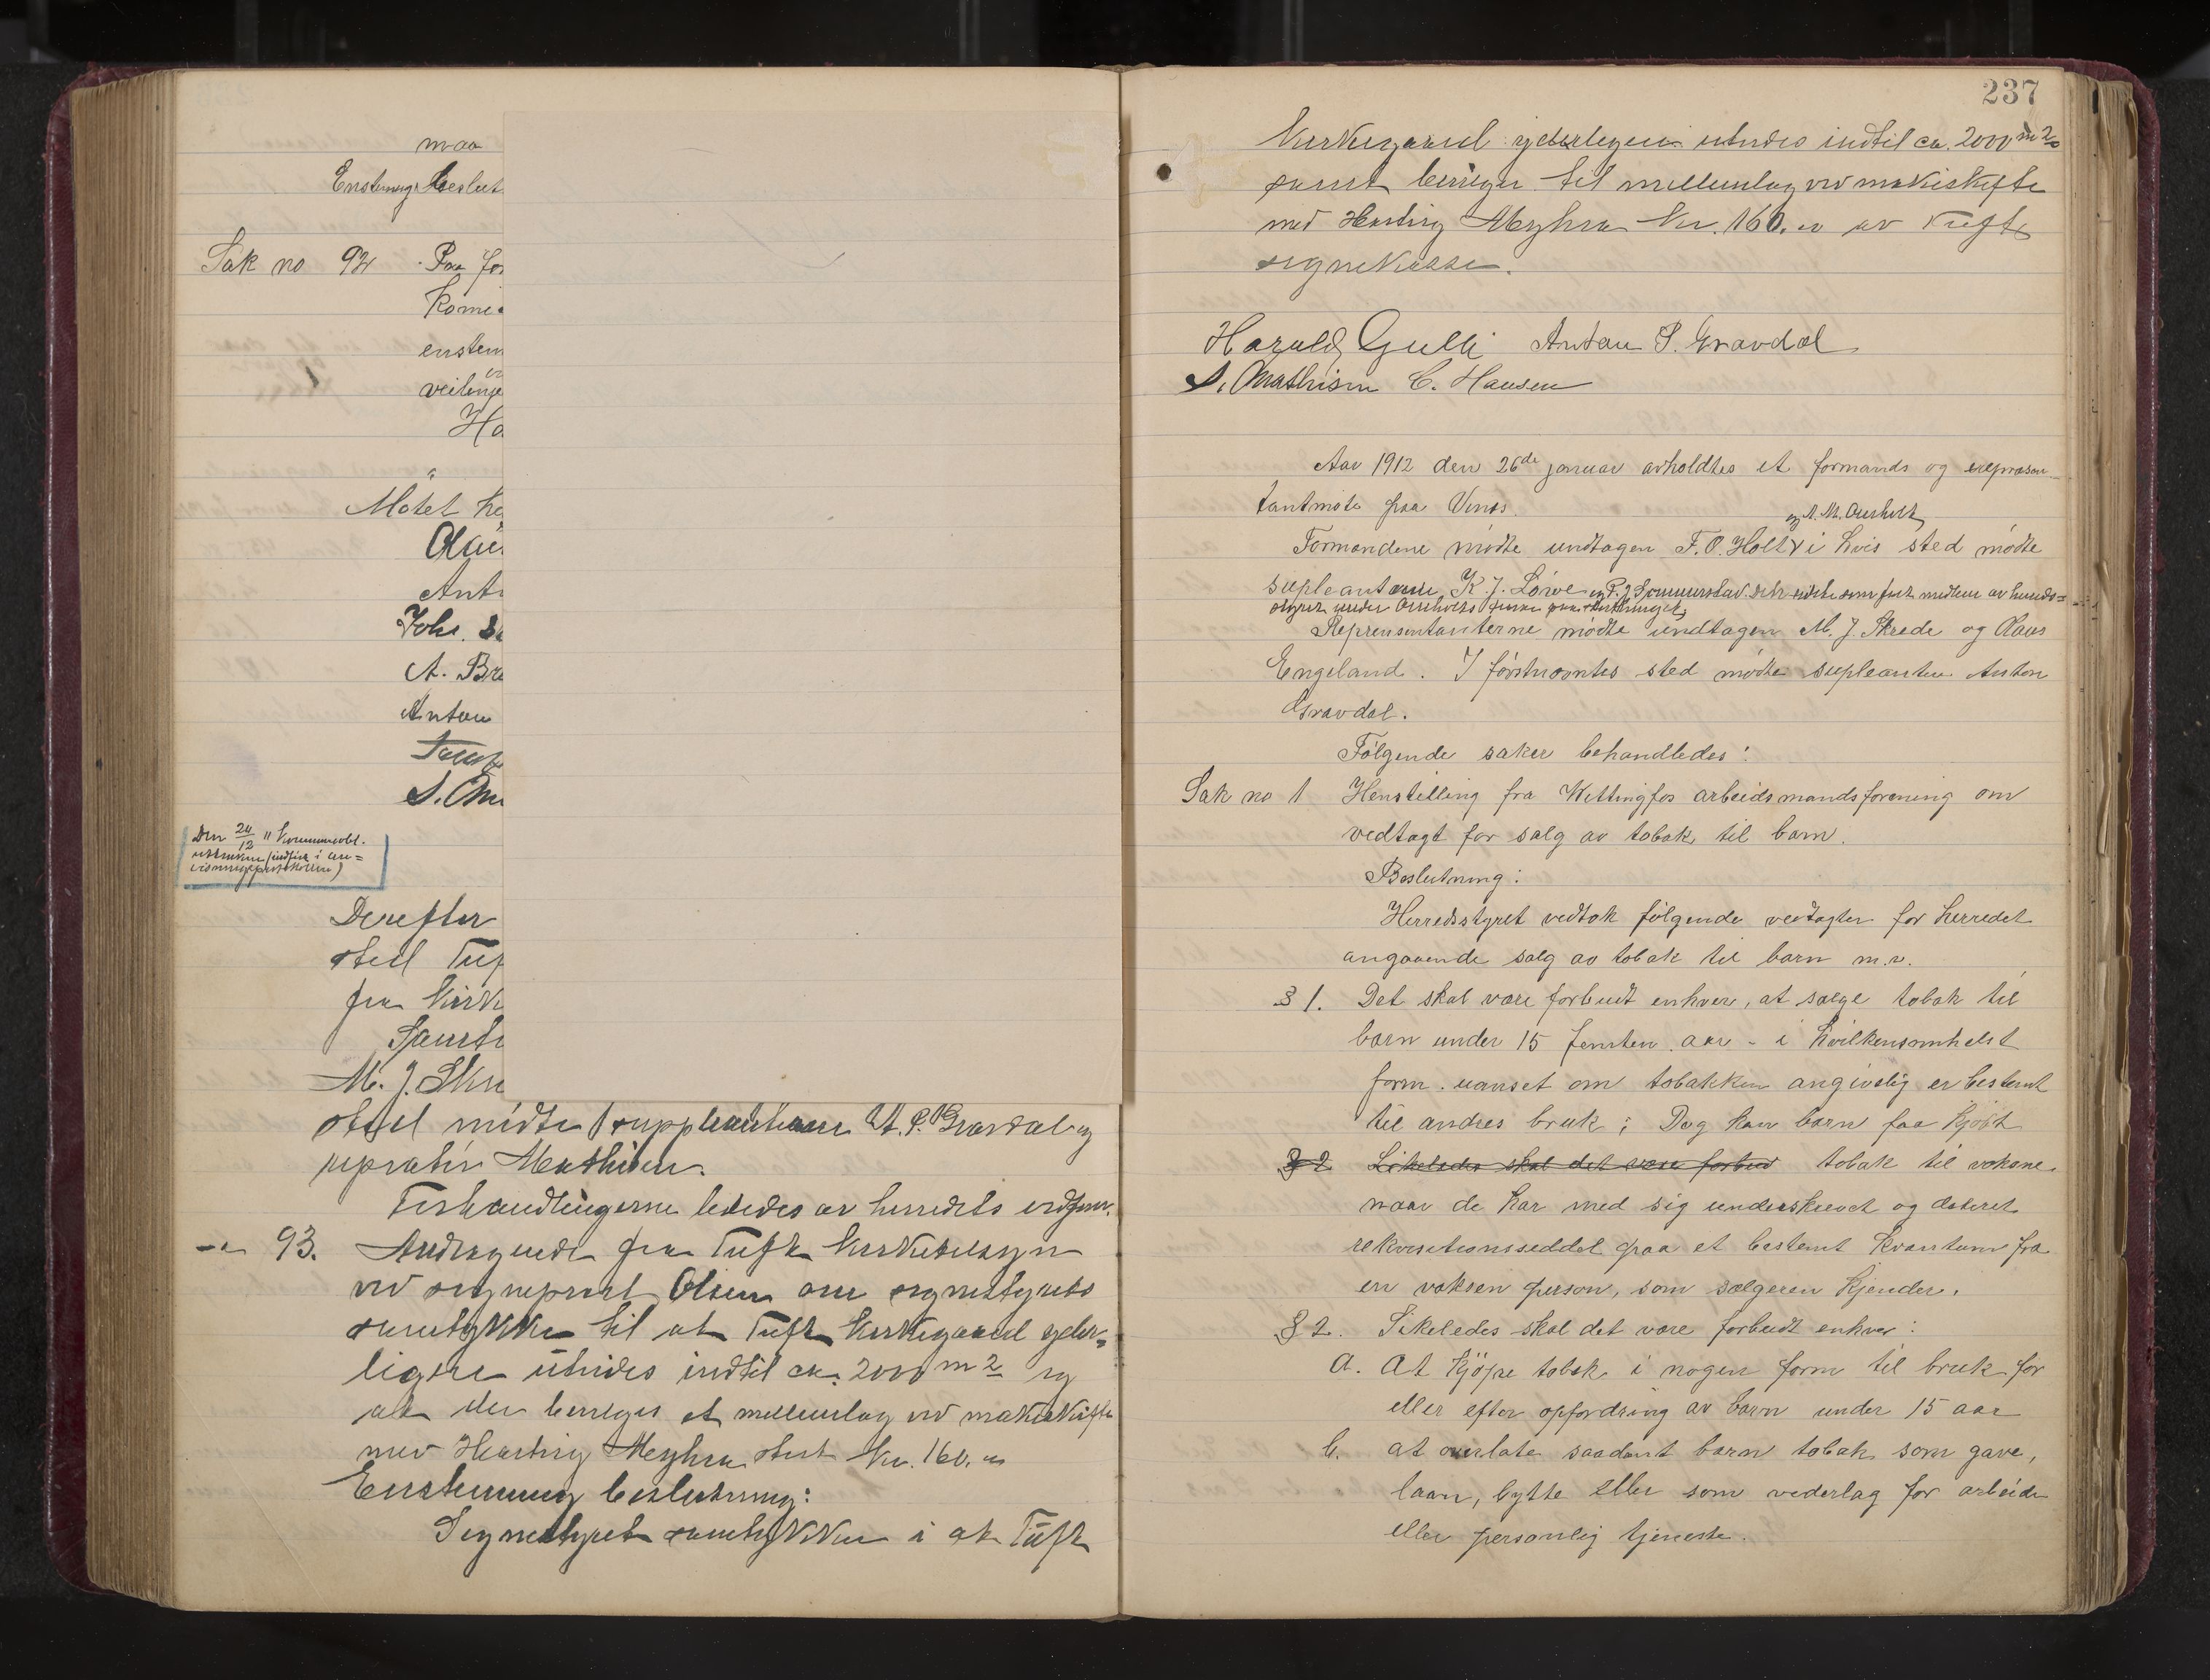 maa
Enstemmig beslut
Sak no 92 Paa for
Kome
enstem
veilinge
Ha
Møtet he
Olau
Ant
Johs. 
A. Bra
Anton
S. Ma
Den 24/12 11 
Derefter
sted Tuf
fra Kirk
Samt
M. J. Skre
sted møtte suppleanterne A. P. Gravdal og
 Mathisen.
Forhandlingerne lededes av herredets ordfører.
-"- 93. Andragende fra Tuft Kirketilsyn
ved sogneprest Olsen om sognestyrets
samtykke til at Tuft Kirkegaard yder=
ligere utvides indtil ca. 2000 m2 og
at der bevilges et mellemlag ved makeskifte
med Hartvig Myhra stort Kr. 160.00
Enstemmig beslutning:
Sognestyret samtykker i at Tuft
237
Kirkegaard yderligere utvides indtil ca. 2000 m2
samt bevilger til mellemlag ved makeskifte
med Hartvig Myhra Kr. 160.00 av Tufts
sognekasse.
Harald Gulli Antan P. Gravdal
S. Mathisen C. Hansen
Aar 1912 den 26de januar avholdtes et formands og repræsen-
tantmøte paa Vinæs.
og A. M. Ausholt
Formandene mødte undtagen F. O. Holt i hvis sted mødte
supleanterne K. J. Løwe og P. J. Sommerstad. sidste som fast medlem av herreds=
styret under Ausholts 
Reprensentanterne mødte undtagen M. J. Skrede og Olaus
Engeland. I førstnævntes sted mødte supleanten Anton
Gravdal.
Følgende saker behandledes:
Sak no 1 Henstilling fra Wittingfos arbeidsmandsforening om
vedtægt for salg av tobak til barn.
Beslutning:
Herredsstyret vedtok følgende vedtægter for herredet
angaaende salg av tobak til barn m.v.
§ 1. Det skal være forbudt enhver, at sælge tobak til
barn under 15 femten aar - i hvilkensomhelst
form. uanset om tobakken angivelig er bestemt
til andres bruk; Dog kan barn faa kjøbt
§ 2 Likeledes skal det være forbud tobak til voksne.
naar de har med sig underskrevet og dateret
rekvisitionsseddel paa et bestemt kvantum fra
en voksen person, som sælgeren kjender.
§ 2. Likeledes skal det være forbudt enhver:
a. At kjøpe tobak i nogen form til bruk for
eller efter opfordring av barn under 15 aar
b. at overlate saadant barn tobak som gave,
laan, bytte eller som vederlag for arbeide
eller personlig tjeneste.